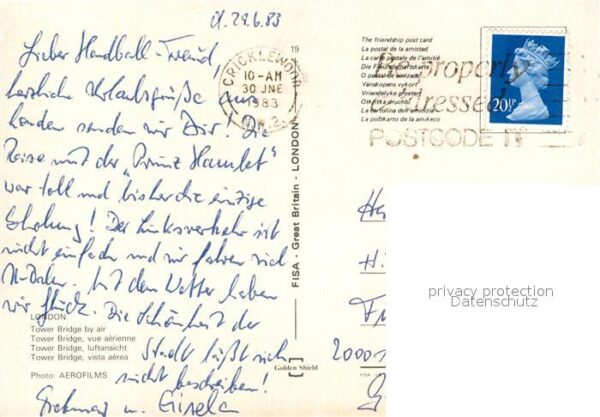 d. 29.6.83
Lieber Handball-Freund,
herzliche Urlaubsgrüße aus
London senden wir Dir! Die
Reise mit der "Prinz Hamlet"
war toll und bisher die einzige
Erholung! Der Linksverkehr ist
nicht einfach und wir fahren viel
U-Bahn. Mit dem Wetter haben
wir Glück. Die Schönheit der
Stadt läßt sich
nicht beschreiben!
u. Gisela
LONDON
Tower Bridge by air
Tower Bridge, vue aérienne
Tower Bridge, luftansicht
Tower Bridge, vista aèrea
Photo: AEROFILMS
19
FISA - Great Britain - LONDON
Golden Shield
CRICKLEWOOD
10-AM
30 JNE
1983
N.W.2
The friendship post card
La postal de la amistad
La carte postale de l'amitié
Die Freundschaftskarte
O postal de amizade
Vänskapens vykort
Vriendelijke groeten
La cartolina dell'amicizia
La postkarto de la amikeco
Be properly
addressed
POSTCODE IT
20½P
2000
privacy protection
Datenschutz